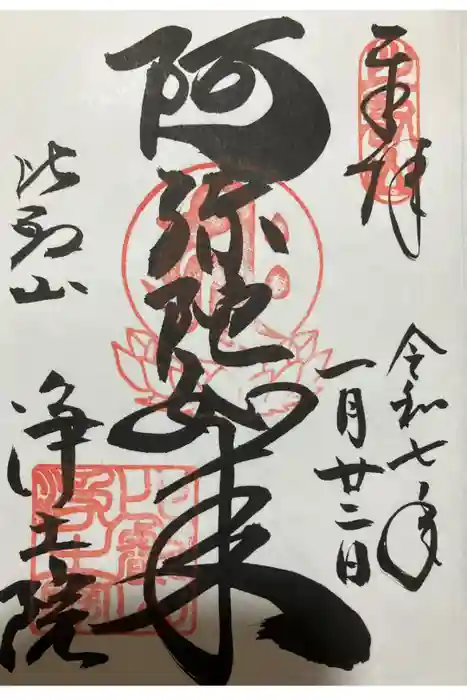 奉拝
令和七年
一月廿二日
阿弥陀如来
比叡山
浄土院